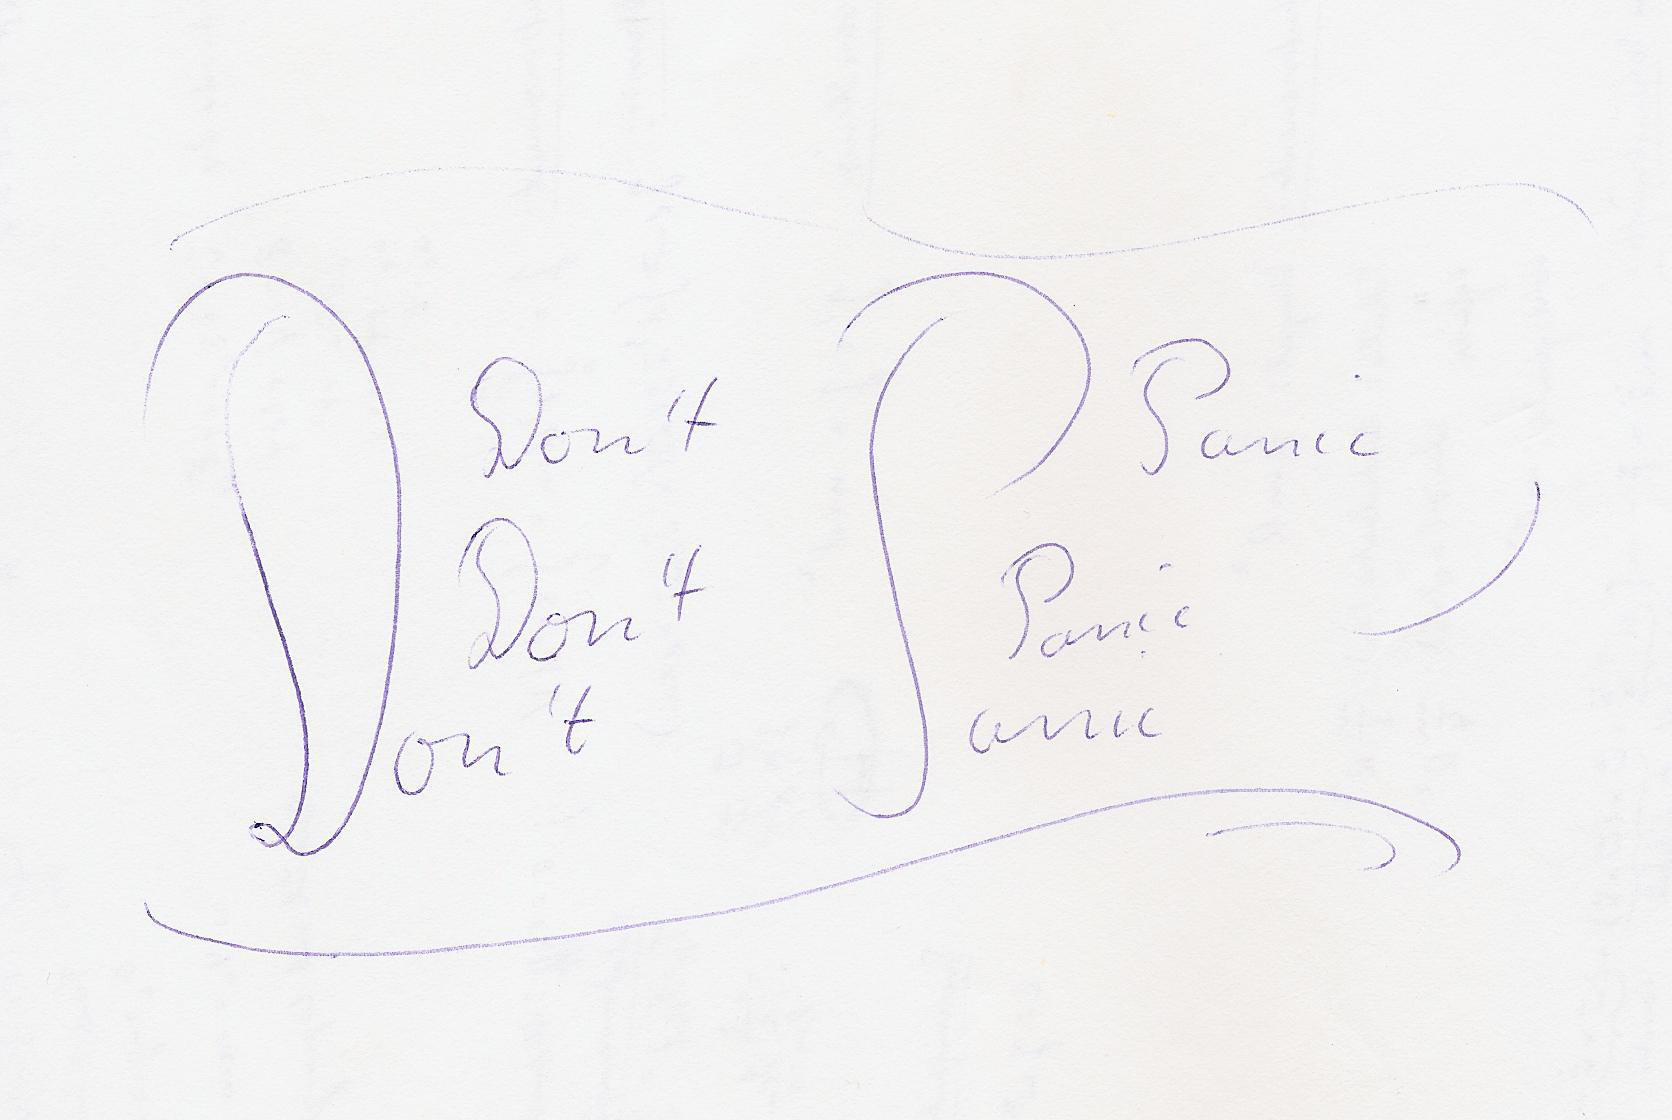 Don't Panic
Don't Panic
Don't Panic